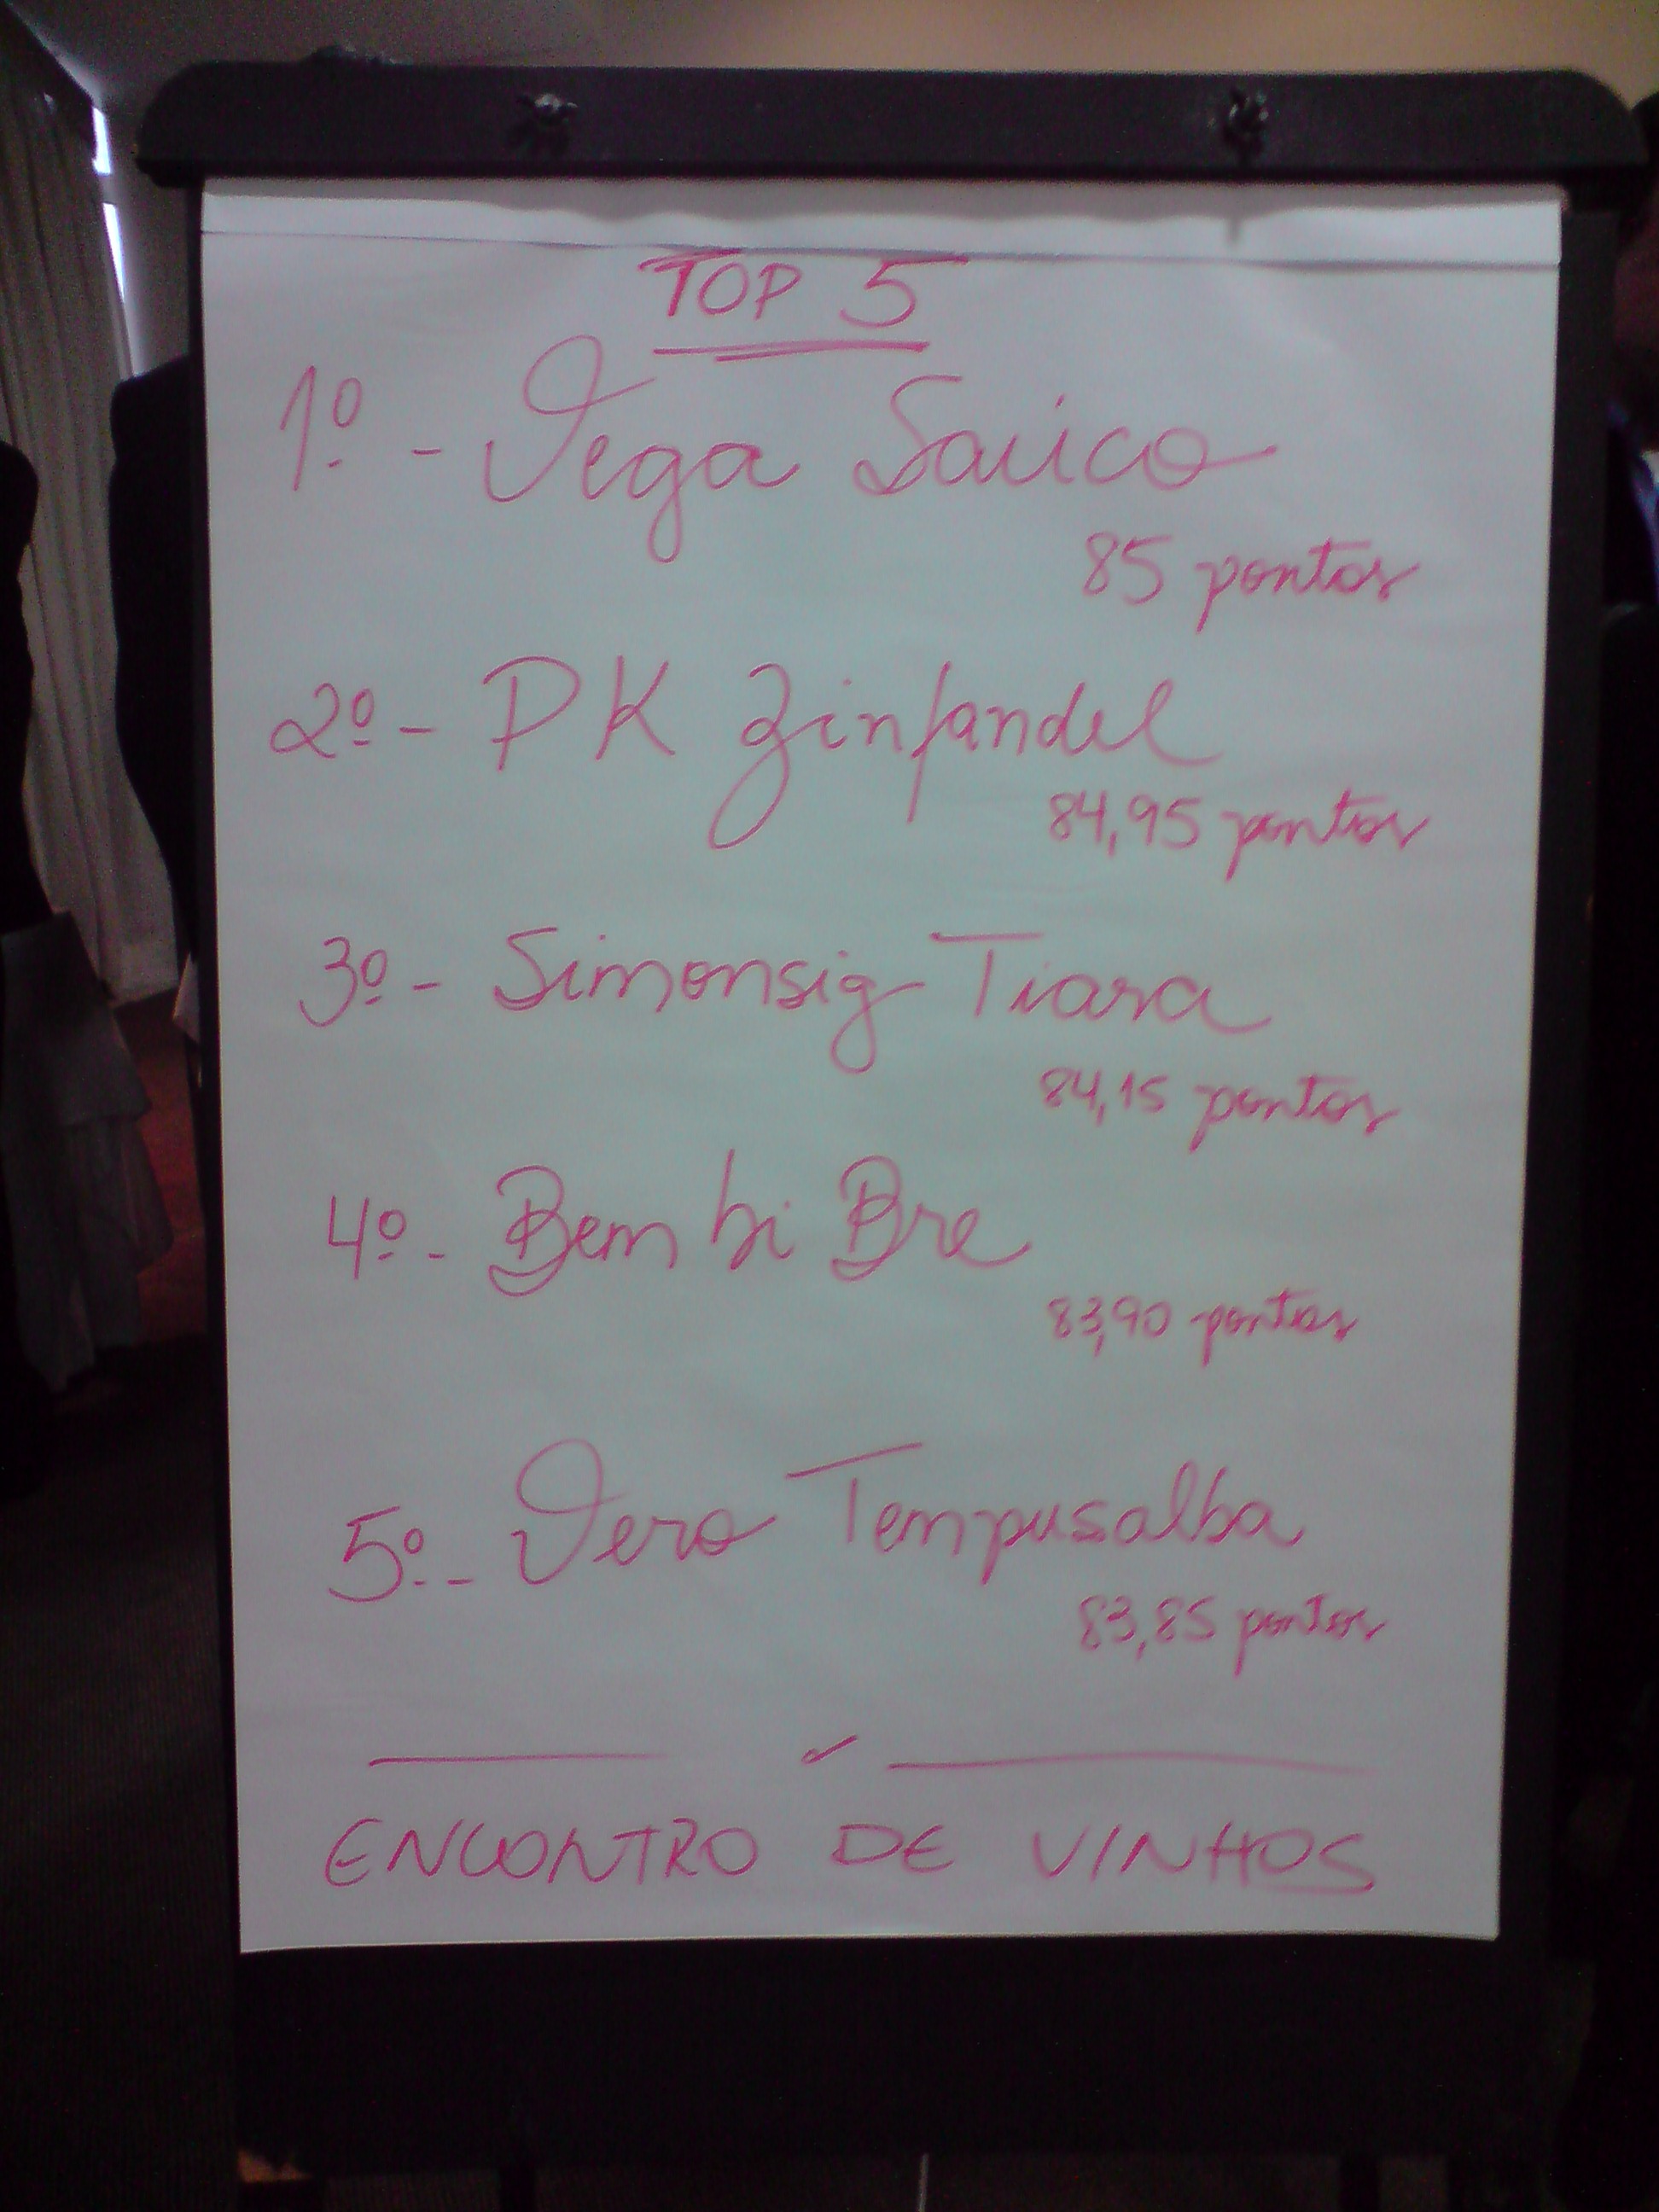 TOP 5
1º - Vega Sauco
85 pontos
2º - PK Zinfandel
84,95 pontos
3º - Simonsig Tiara
84,15 pontos
4º - Bembi Bre
83,90 pontos
5º - Vero Tempusalba
83,85 pontos
ENCONTRO DE VINHOS